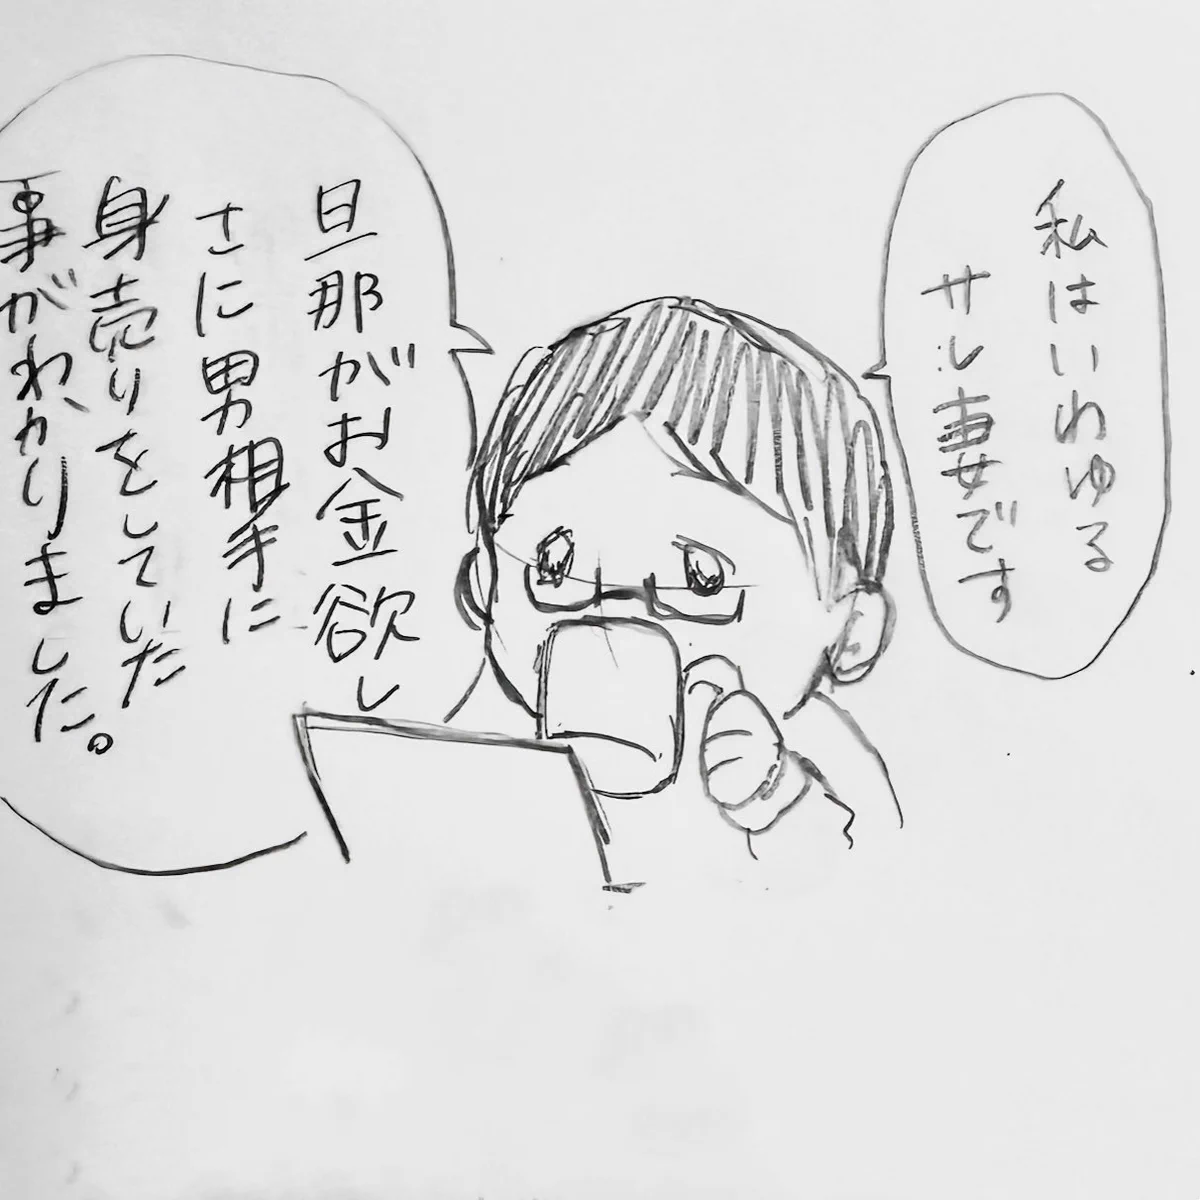 私はいわゆる
サレ妻です
旦那がお金欲し
さに男相手に
身売りをしていた
事がわかりました。